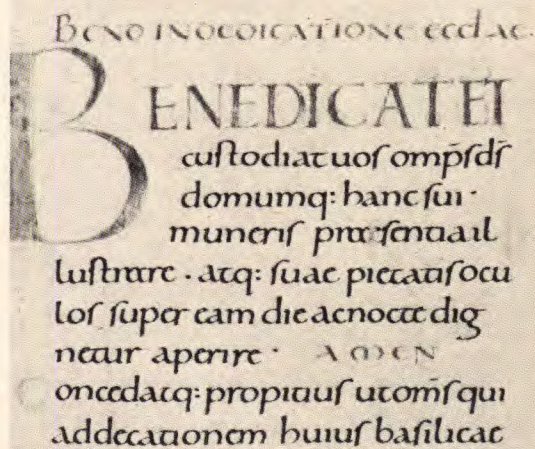 BEN̄ IN DEDICATIONE ECCLAE.
BENEDICAT ET
custodiat uos omp̄s d̄s
domumq: hanc sui ·
muneris praesentia il
lustrare · atq: suae pietatis ocu
los super eam die ac nocte dig
netur aperire · AMEN
Concedatq: propitius ut om̄s qui
ad decationem huius basilicae